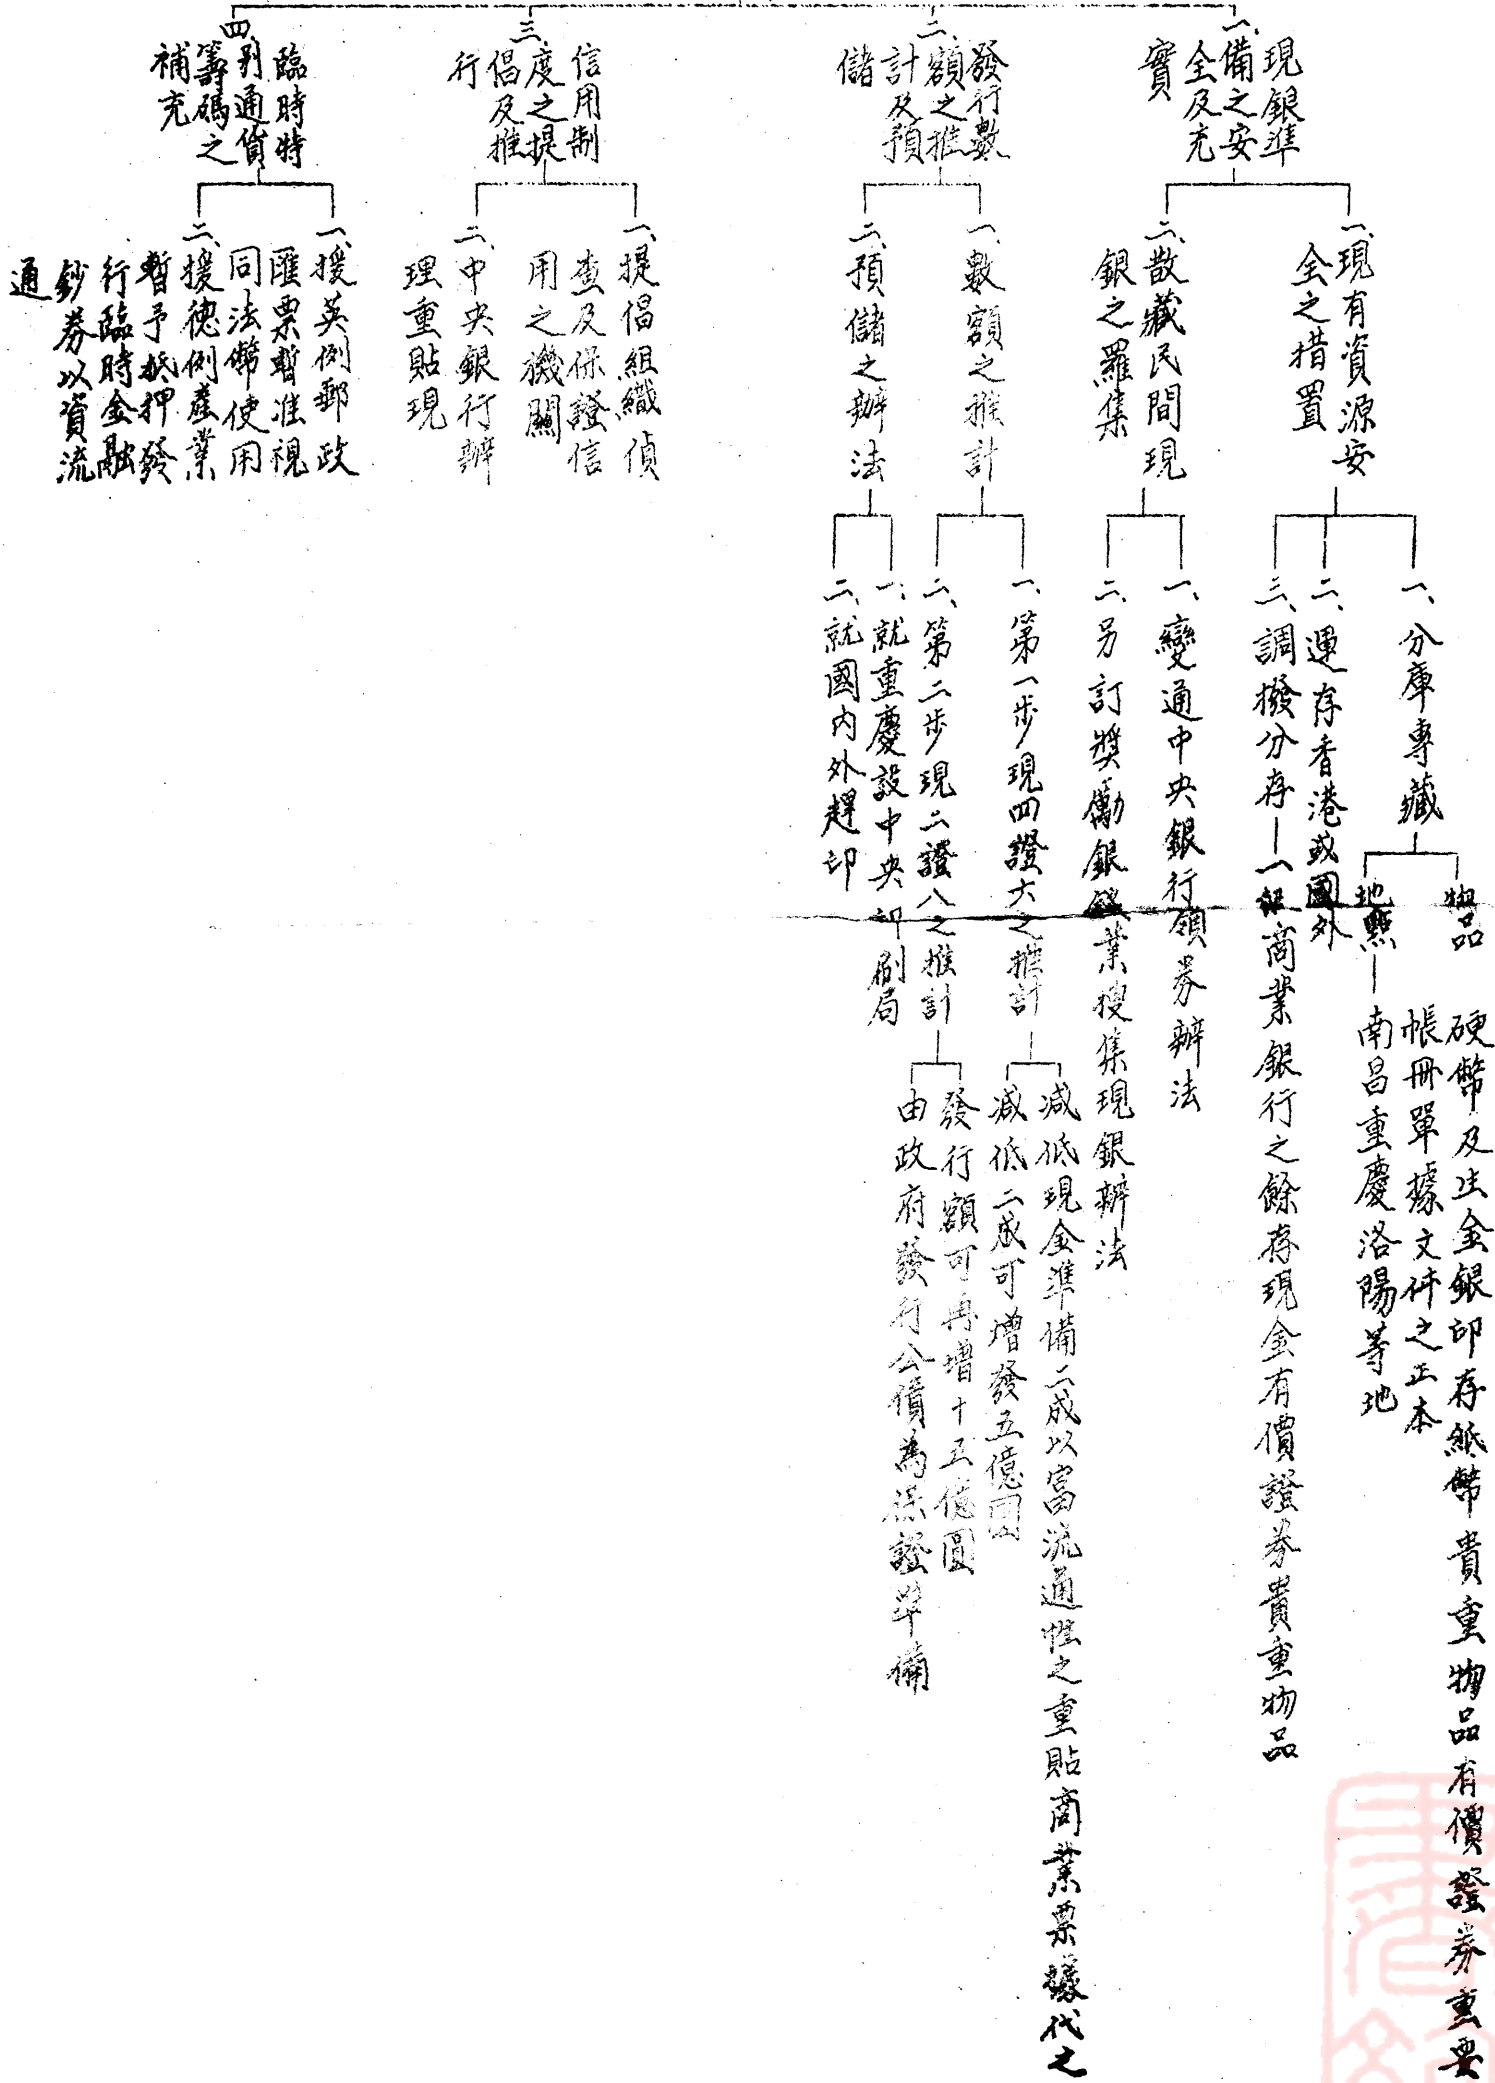 一、現銀準
備之安
全及充
實
一、現有資源安
全之措置
一、分庫專藏
物品
硬幣及生金銀印存紙幣貴重物品有價證券重要
帳冊單據文件之正本
地點
南昌重慶洛陽等地
二、運存香港或國外
三、調撥分存
一般商業銀行之餘存現金有價證券貴重物品
二、散藏民間現
銀之羅集
一、變通中央銀行領券辦法
二、另訂獎勵銀錢業搜集現銀辦法
二、發行數
額之推
計及預
儲
一、數額之推計
一、第一步現四證六之推計
減低現金準備二成以富流通性之重貼商業票據代之
減低二成可增發五億圓
二、第二步現二證八之推計
發行額可再增十五億圓
由政府發行公債為保證準備
二、預儲之辦法
一、就重慶設中央印刷局
二、就國內外趕印
三、信用制
度之提
倡及推
行
一、提倡組織偵
查及保證信
用之機關
二、中央銀行辦
理重貼現
四、臨時特
別通貨
籌碼之
補充
一、援英例郵政
匯票暫准視
同法幣使用
二、援德例產業
暫予抵押發
行臨時金融
鈔券以資流
通